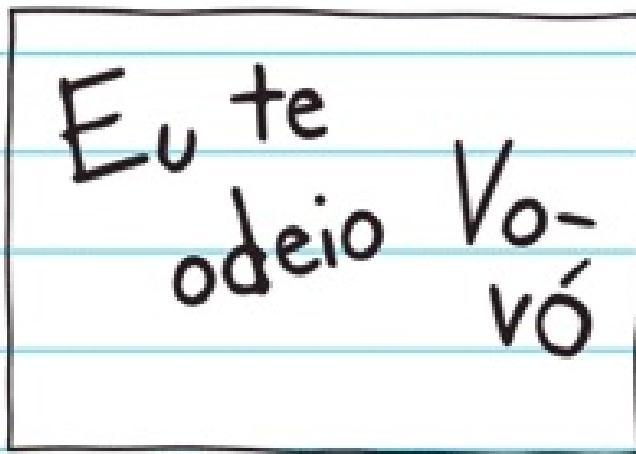 Eu te
odeio Vo-
vó